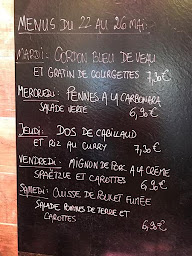 MENUS DU 22 AU 26 MAI:
MARDI: CORDON BLEU DE VEAU
ET GRATIN DE COURGETTES 7,30€
MERCREDI: PENNES A LA CARBONARA
SALADE VERTE 6,90€
JEUDI: DOS DE CABILLAUD
ET RIZ AU CURRY 7,30€
VENDREDI: MIGNON DE PORC A LA CRÈME
SPAËTZLE ET CAROTTES 6,90€
SAMEDI: CUISSE DE POULET FUMÉE
SALADE POMMES DE TERRE ET
CAROTTES 6,90€